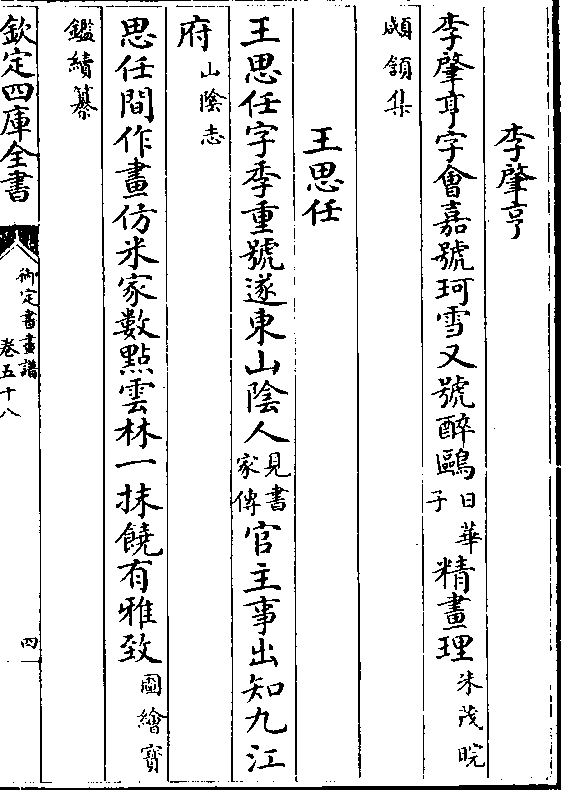 李肇亨
李肇亨字會嘉號珂雪又號醉鷗日華子精畫理朱茂晥
顑頷集
王思任
王思任字季重號遂東山陰人見書家傳官主事出知九江
府山陰志
思任間作畫仿米家數點雲林一抹饒有雅致圖繪寶
鑑續纂
欽定四庫全書
御定書畫譜
卷五十八
四